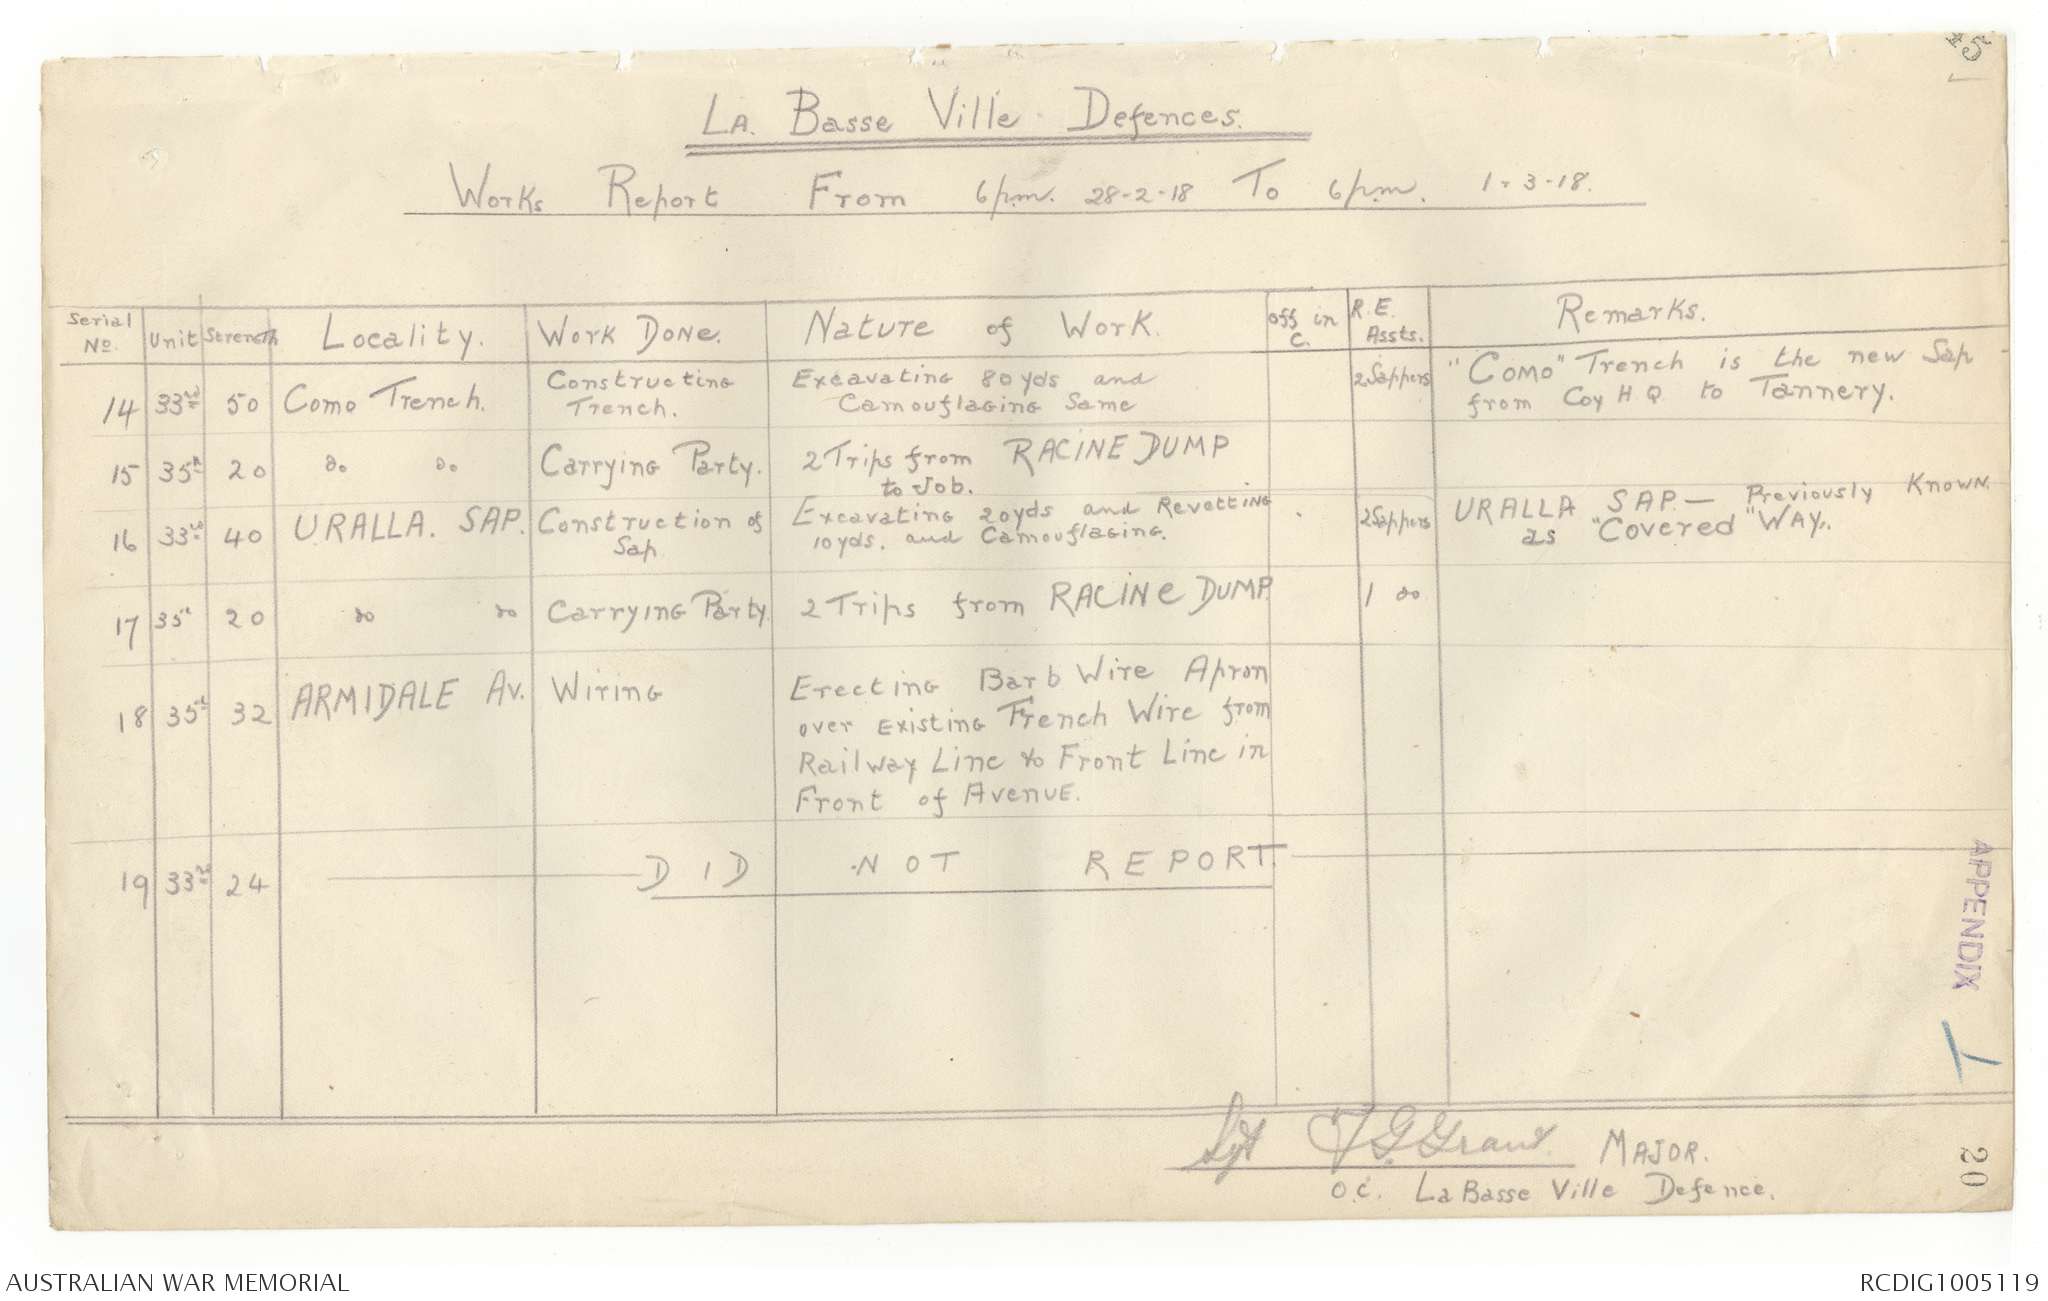 45
La. Basse Ville Defences.
Works Report From 6p.m. 28-2-18 To 6p.m. 1-3-18.
Serial No. Unit Strength Locality. Work Done. Nature of Work. Off in C. R.E. Assts. Remarks.
14 33rd 50 Como Trench. Constructing Trench. Excavating 80yds and Camouflaging Same 2 Sappers "Como" Trench is the new Sap from Coy H Q to Tannery.
15 35th 20 do do Carrying Party. 2 Trips from RACINE DUMP to Job.
16 33rd 40 URALLA. SAP. Construction of Sap Excavating 20yds and Revetting 10yds. and Camouflaging. 2 Sappers URALLA SAP — Previously Known as "Covered" WAY.
17 35th 20 do do Carrying Party. 2 Trips from RACINE DUMP. 1 do
18 35th 32 ARMIDALE Av. Wiring Erecting Barb Wire Apron
over Existing French Wire from
Railway Line to Front Line in
Front of Avenue.
19 33rd 24 DID NOT REPORT.
APPENDIX
Sgt F G Grant. MAJOR.
O.C. La Basse Ville Defence.
20
AUSTRALIAN WAR MEMORIAL
RCDIG1005119